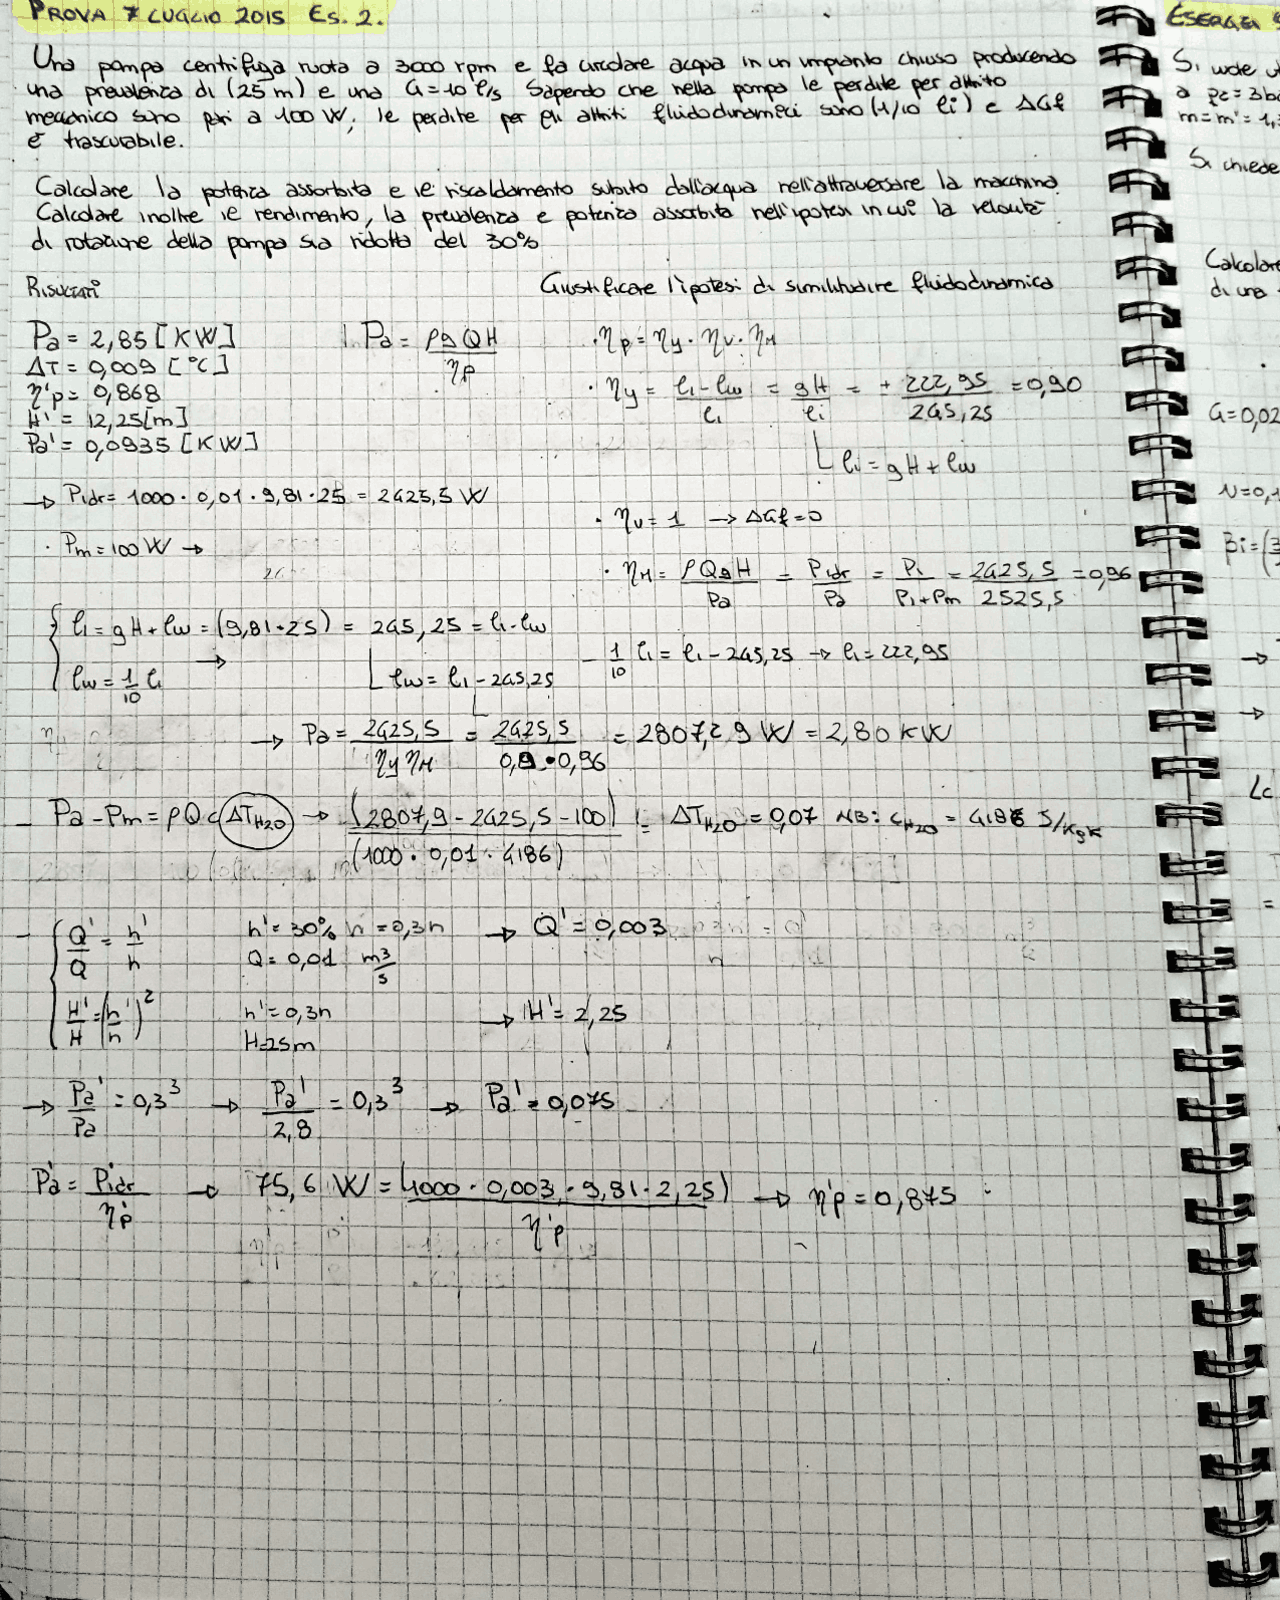 PROVA 7 LUGLIO 2015 ES. 2.
Una pompa centrifuga ruota a 3000 rpm e fa circolare acqua in un impianto chiuso producendo
una prevalenza di (25 m) e una G = 10 l/s Sapendo che nella pompa le perdite per attrito
meccanico sono pari a 100 W, le perdite per gli attriti fluidodinamici sono (1/10 li) e ΔGf
è trascurabile.
Calcolare la potenza assorbita e il riscaldamento subito dall'acqua nell'attraversare la macchina.
Calcolare inoltre il rendimento, la prevalenza e potenza assorbita nell'ipotesi in cui la velocità
di rotazione della pompa sia ridotta del 30%
RISULTATI
Giustificare l'ipotesi di similitudine fluidodinamica
Pa = 2,85 [KW]
ΔT = 0,009 [°C]
η'p = 0,868
H' = 12,25 [m]
Pa' = 0,0935 [KW]
Pa = ρgQH / ηp
· ηp = ηy · ηv · ηM
· ηy = (li - lw) / li = gH / li = + 222,95 / 245,25 = 0,90
li = gH + lw
→ Pidr = 1000 · 0,01 · 9,81 · 25 = 2425,5 W
· ηv = 1 → ΔGf = 0
· Pm = 100 W →
· ηM = ρQgH / Pa = Pidr / Pa = Pi / (Pi + Pm) = 2425,5 / 2525,5 = 0,96
{ li = gH + lw = (9,81 · 25) = 245,25 = li - lw
lw = 1/10 li → lw = li - 245,25
- 1/10 li = li - 245,25 → li = 222,95
→ Pa = 2425,5 / ηy ηM = 2425,5 / 0,9 · 0,96 = 2807,29 W = 2,80 KW
- Pa - Pm = ρQc ΔT H2O → (2807,9 - 2425,5 - 100) / (1000 · 0,01 · 4186) = ΔT H2O = 0,07 NB: c H2O = 4186 J/kgK
- { Q'/Q = n'/n n' = 30% n = 0,3n → Q' = 0,003
Q = 0,01 m3/s
H'/H = (n'/n)^2 n' = 0,3n → H' = 2,25
H=25m
→ Pa'/Pa = 0,3^3 → Pa'/2,8 = 0,3^3 → Pa' = 0,075
P'a = P'idr / η'p → 75,6 W = (1000 · 0,003 · 9,81 · 2,25) / η'p → η'p = 0,875
ESERCIZI
Si vuole
a p2 = 3b
m = m' = 1,
Si chiede
Calcolare
di una
G = 0,02
N = 0,1
βi = (3
Lc